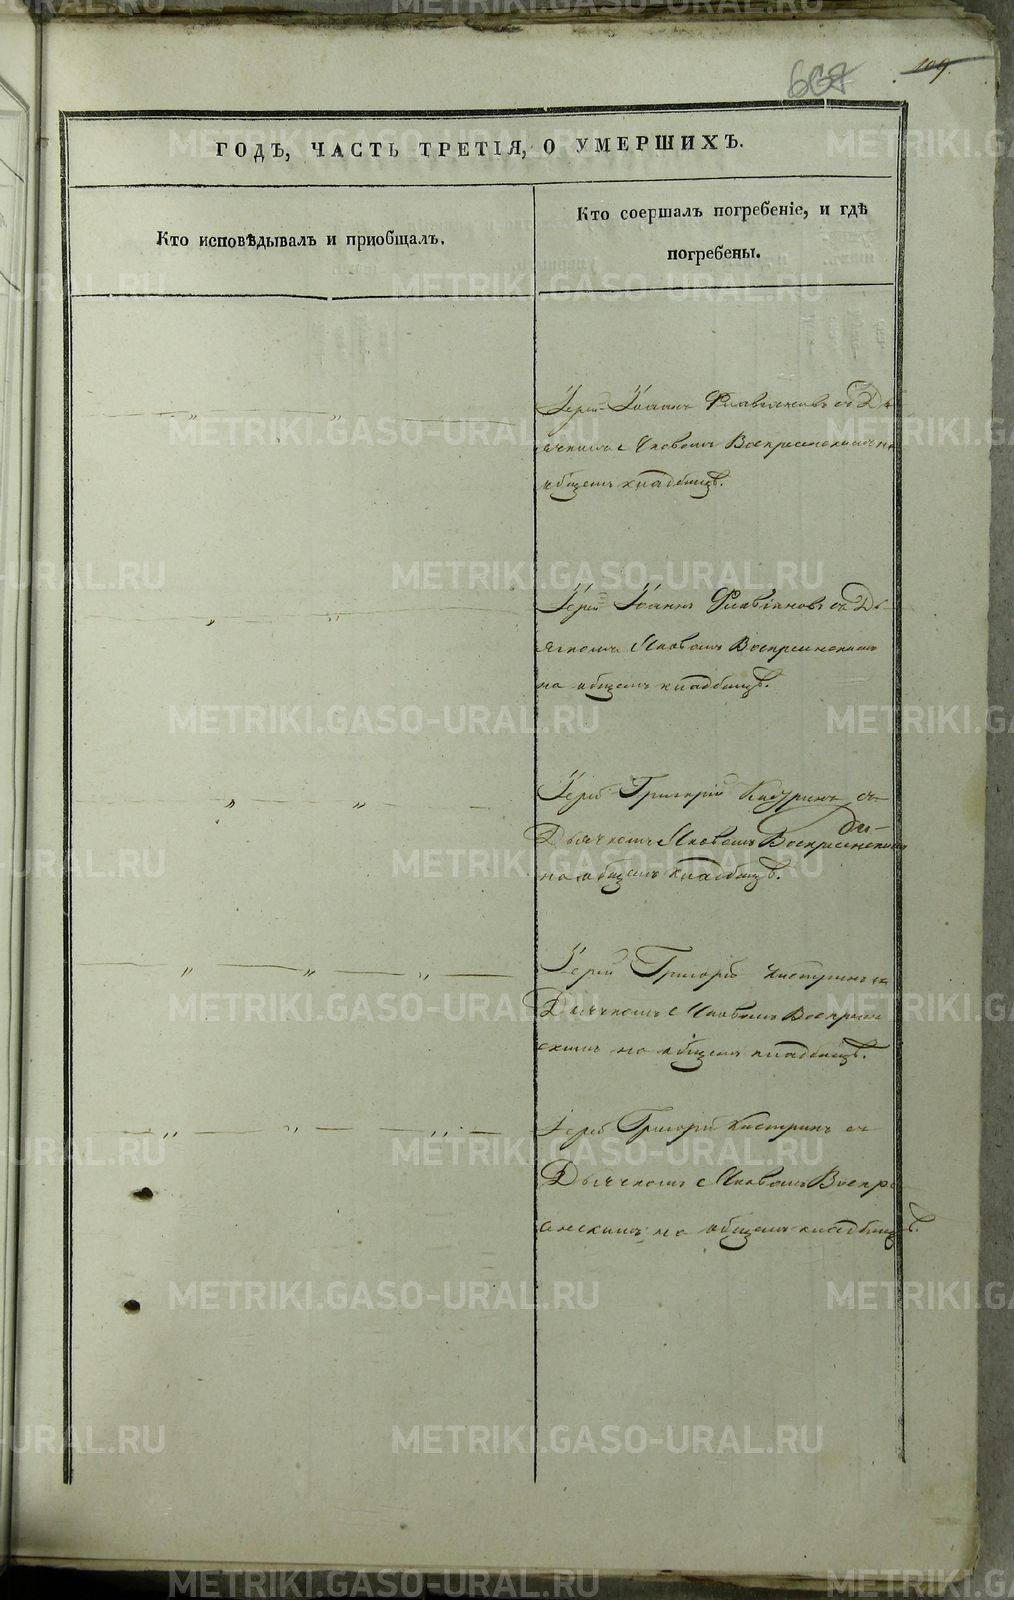 667
109.
ГОДЪ, ЧАСТЬ ТРЕТІЯ, О УМЕРШИХЪ.
Кто исповѣдывалъ и приобщалъ.
Кто соершалъ погребеніе, и гдѣ
погребены.
Іерей Іоаннъ Флавіановъ съ Дь
ячкомъ Яковомъ Воскресенскимъ на
общемъ кладбищѣ.
Іерей Іоаннъ Флавіановъ съ Дь
ячкомъ Яковомъ Воскресенскимъ
на общемъ кладбищѣ.
Іерей Григорій съ
Дьячкомъ Яковомъ Воскресенскимъ
на общемъ кладбищѣ.
Іерей Григорій съ
Дьячкомъ Яковомъ Воскресен
скимъ на общемъ кладбищѣ.
Іерей Григорій съ
Дьячкомъ Яковомъ Воскре
сенскимъ на общемъ кладбищѣ.
METRIKI.GASO-URAL.RU